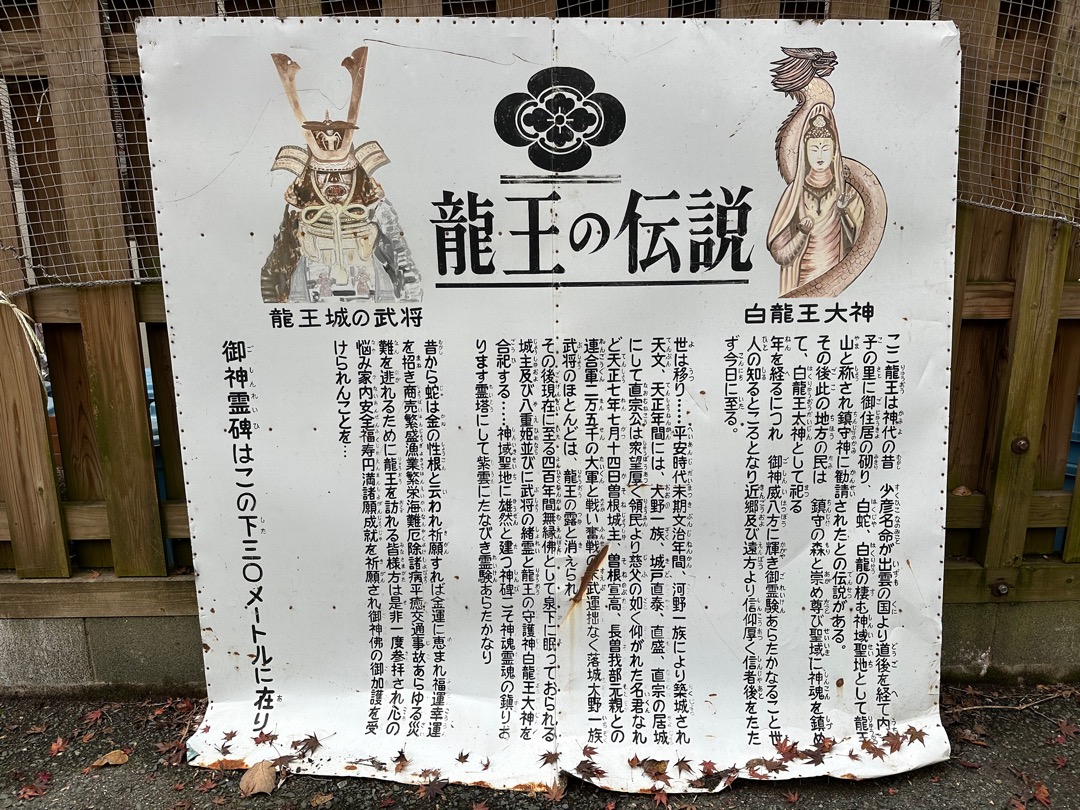 龍王の伝説
龍王城の武将
白龍王大神
ここ龍王は神代の昔 少彦名命が出雲の国より道後を経て内
子の里に御住居の砌り、白蛇、白龍の棲む神域聖地として龍王
山と称され鎮守神に勧請されたとの伝説がある。
その後此の地方の民は 鎮守の森と崇め尊び聖域に神魂を鎮め
て、白龍王大神として祀る
年を経るにつれ 御神威八方に輝き御霊験あらたかなること世
人の知るところとなり近郷及び遠方より信仰厚く信者後をたた
ず今日に至る。
世は移り……平安時代末期文治年間、河野一族により築城され
天文、天正年間には、大野一族、城戸直泰、直盛、直宗の居城
にして直宗公は衆望厚く領民より慈父の如く仰がれた名君なれ
ど天正七年七月十四日曽根城主、曽根宣高、長曽我部元親との
連合軍二万五千の大軍と戦い奮戦 武運拙なく落城大野一族
武将のほとんどは、龍王の露と消えられ
その後現在に至る四百年間無縁佛として泉下に眠っておられる
城主及び八重姫並びに武将の緒霊と龍王の守護神白龍王大神を
合祀する……神域聖地に雄然と建つ神碑こそ神魂霊魂の鎮りお
ります霊塔にして紫雲にたなびき霊験あらたかなり
昔から蛇は金の性根と云われ祈願すれば金運に恵まれ福運幸運
を招き商売繁盛漁業繁栄海難厄除諸病平癒交通事故あらゆる災
難を逃れるために龍王を訪れる皆様方は是非一度参拝され心の
悩み家内安全福寿円満諸願成就を祈願され御神佛の御加護を受
けられんことを…
御神霊碑はこの下三〇メートルに在り